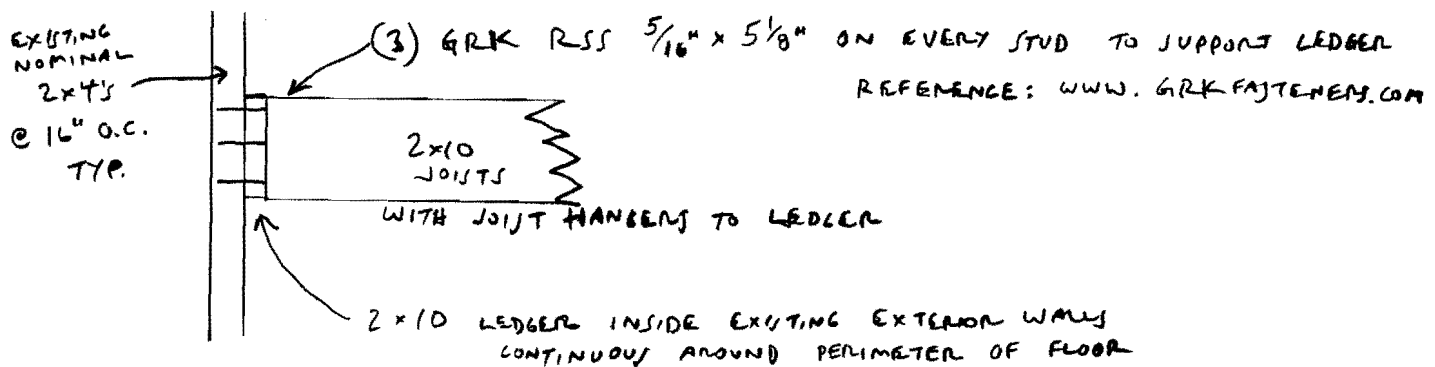 EXISTING
NOMINAL
2x4'S
@ 16" O.C.
TYP.
(3) GRK RSS 5/16" x 5 1/8" ON EVERY STUD TO SUPPORT LEDGER
REFERENCE: WWW.GRKFASTENERS.COM
2x10
JOISTS
WITH JOIST HANGERS TO LEDGER
2x10 LEDGER INSIDE EXISTING EXTERIOR WALLS
CONTINUOUS AROUND PERIMETER OF FLOOR